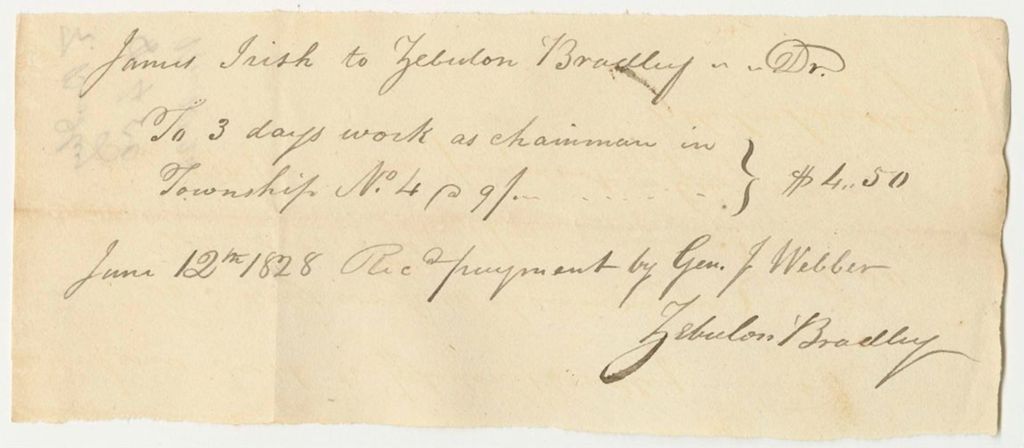 James Irish to Zebulon Bradley " " Dr.
To 3 days work as chainman in
Township No. 4 @ 9/. . . . . . } $4..50
June 12th 1828 Recd payment by Gen. J Webber
Zebulon Bradley